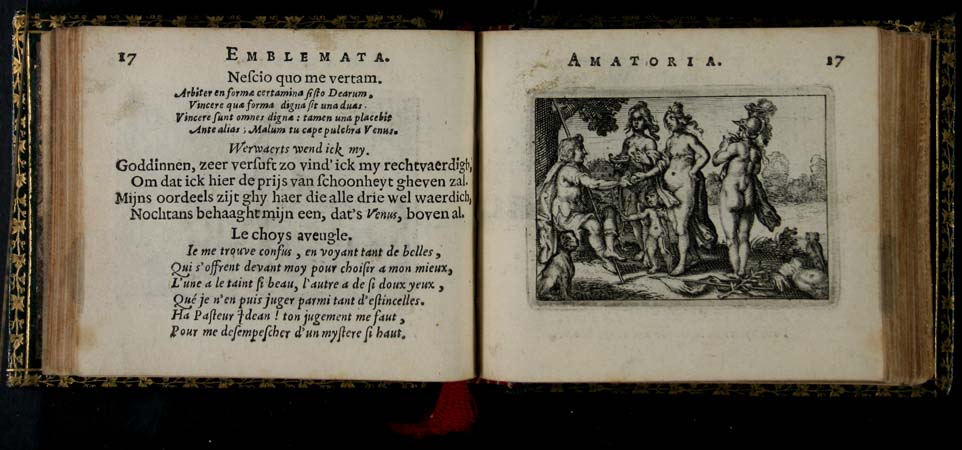 17 EMBLEMATA.
Neſcio quo me vertam.
Arbiter en formæ certamina ſiſto Dearum,
Vincere quæ forma digna ſit una duas.
Vincere ſunt omnes dignæ: tamen una placebit
Ante alias; Malum tu cape pulchra Venus.
Werwaerts wend ick my.
Goddinnen, zeer verſuft zo vind' ick my rechtvaerdigh,
Om dat ick hier de prijs van ſchoonheyt gheven zal.
Mijns oordeels zijt ghy haer die alle drie wel waerdich,
Nochtans behaaght mijn een, dat's Venus, boven al.
Le choys aveugle.
Ie me trouve confus, en voyant tant de belles,
Qui s'offrent devant moy pour choiſir a mon mieux,
L'une a le taint ſi beau, l'autre a de ſi doux yeux,
Qué je n'en puis juger parmi tant d'eſtincelles.
Ha Paſteur Idean! ton jugement me faut,
Pour me deſempeſcher d'un myſtere ſi haut.
AMATORIA. 17